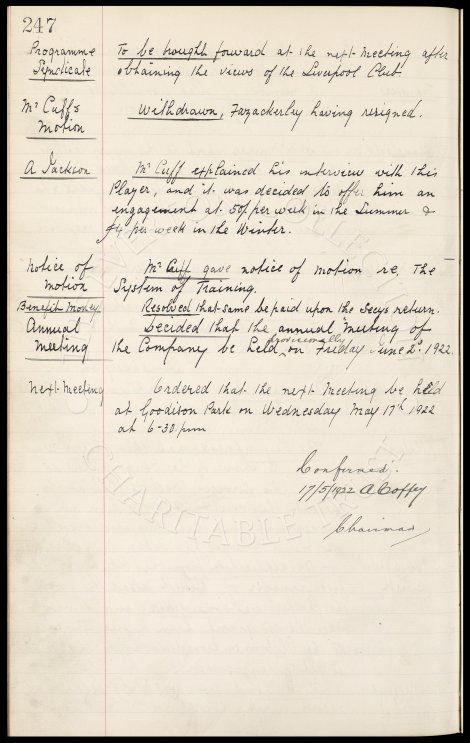 247
Programme
Syndicate
To be brought forward at the next Meeting after
obtaining the views of the Liverpool Club
Mr Cuff's
Motion
Withdrawn, Fazackerley having resigned.
A Jackson
Mr Cuff explained his interview with this
Player, and it was decided to offer him an
engagement at 50/- per week in the Summer &
£4 per week in the Winter.
Notice of
Motion
Mr Cuff gave notice of motion re. the
System of Training.
Benefit Money
Resolved that same be paid upon the Secys return.
Annual
Meeting
Decided that the annual meeting of
provisionally
the Company be held on Friday June 2d. 1922.
Next Meeting
Ordered that the next Meeting be held
at Goodison Park on Wednesday May 17th 1922
at 6-30 pm
Confirmed.
17/5/1922 A Coffey
Chairman
CHARITABLE